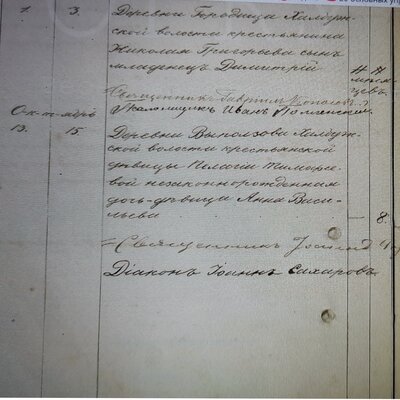 1. 3. Деревни Городища Хилдуж-
ской волости крестьянина
Николая Григорьева сынъ
младенецъ Димитрій
Священникъ Гавріилъ
Псаломщикъ Иванъ
Октябрь
13. 15 Деревни Выползова Хилдуж-
ской волости крестьянской
дѣвицы Пелагіи Тимофѣе-
вой незаконнорожденная
дочь-дѣвица Анна Васи-
льева — 8.
Священникъ Іоаннъ
Діаконъ Іоаннъ Сахаровъ